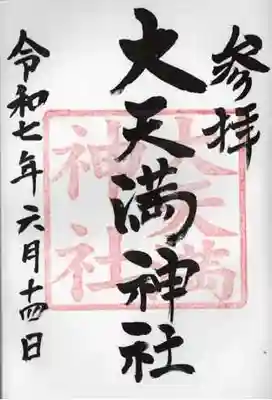 参拝
大天満神社
令和七年六月十四日
大天満
神社